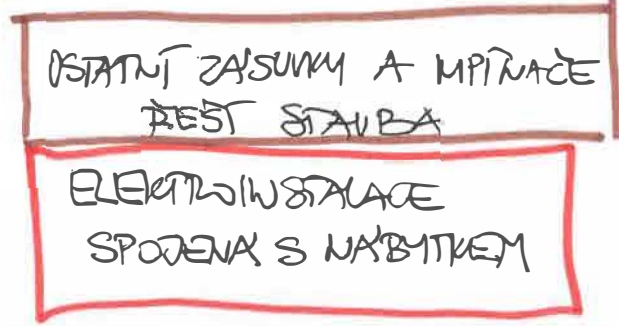 OSTATNÍ ZÁSUVKY A VYPÍNAČE
ŘEŠÍ STAVBA
ELEKTROINSTALACE
SPOJENÁ S NÁBYTKEM